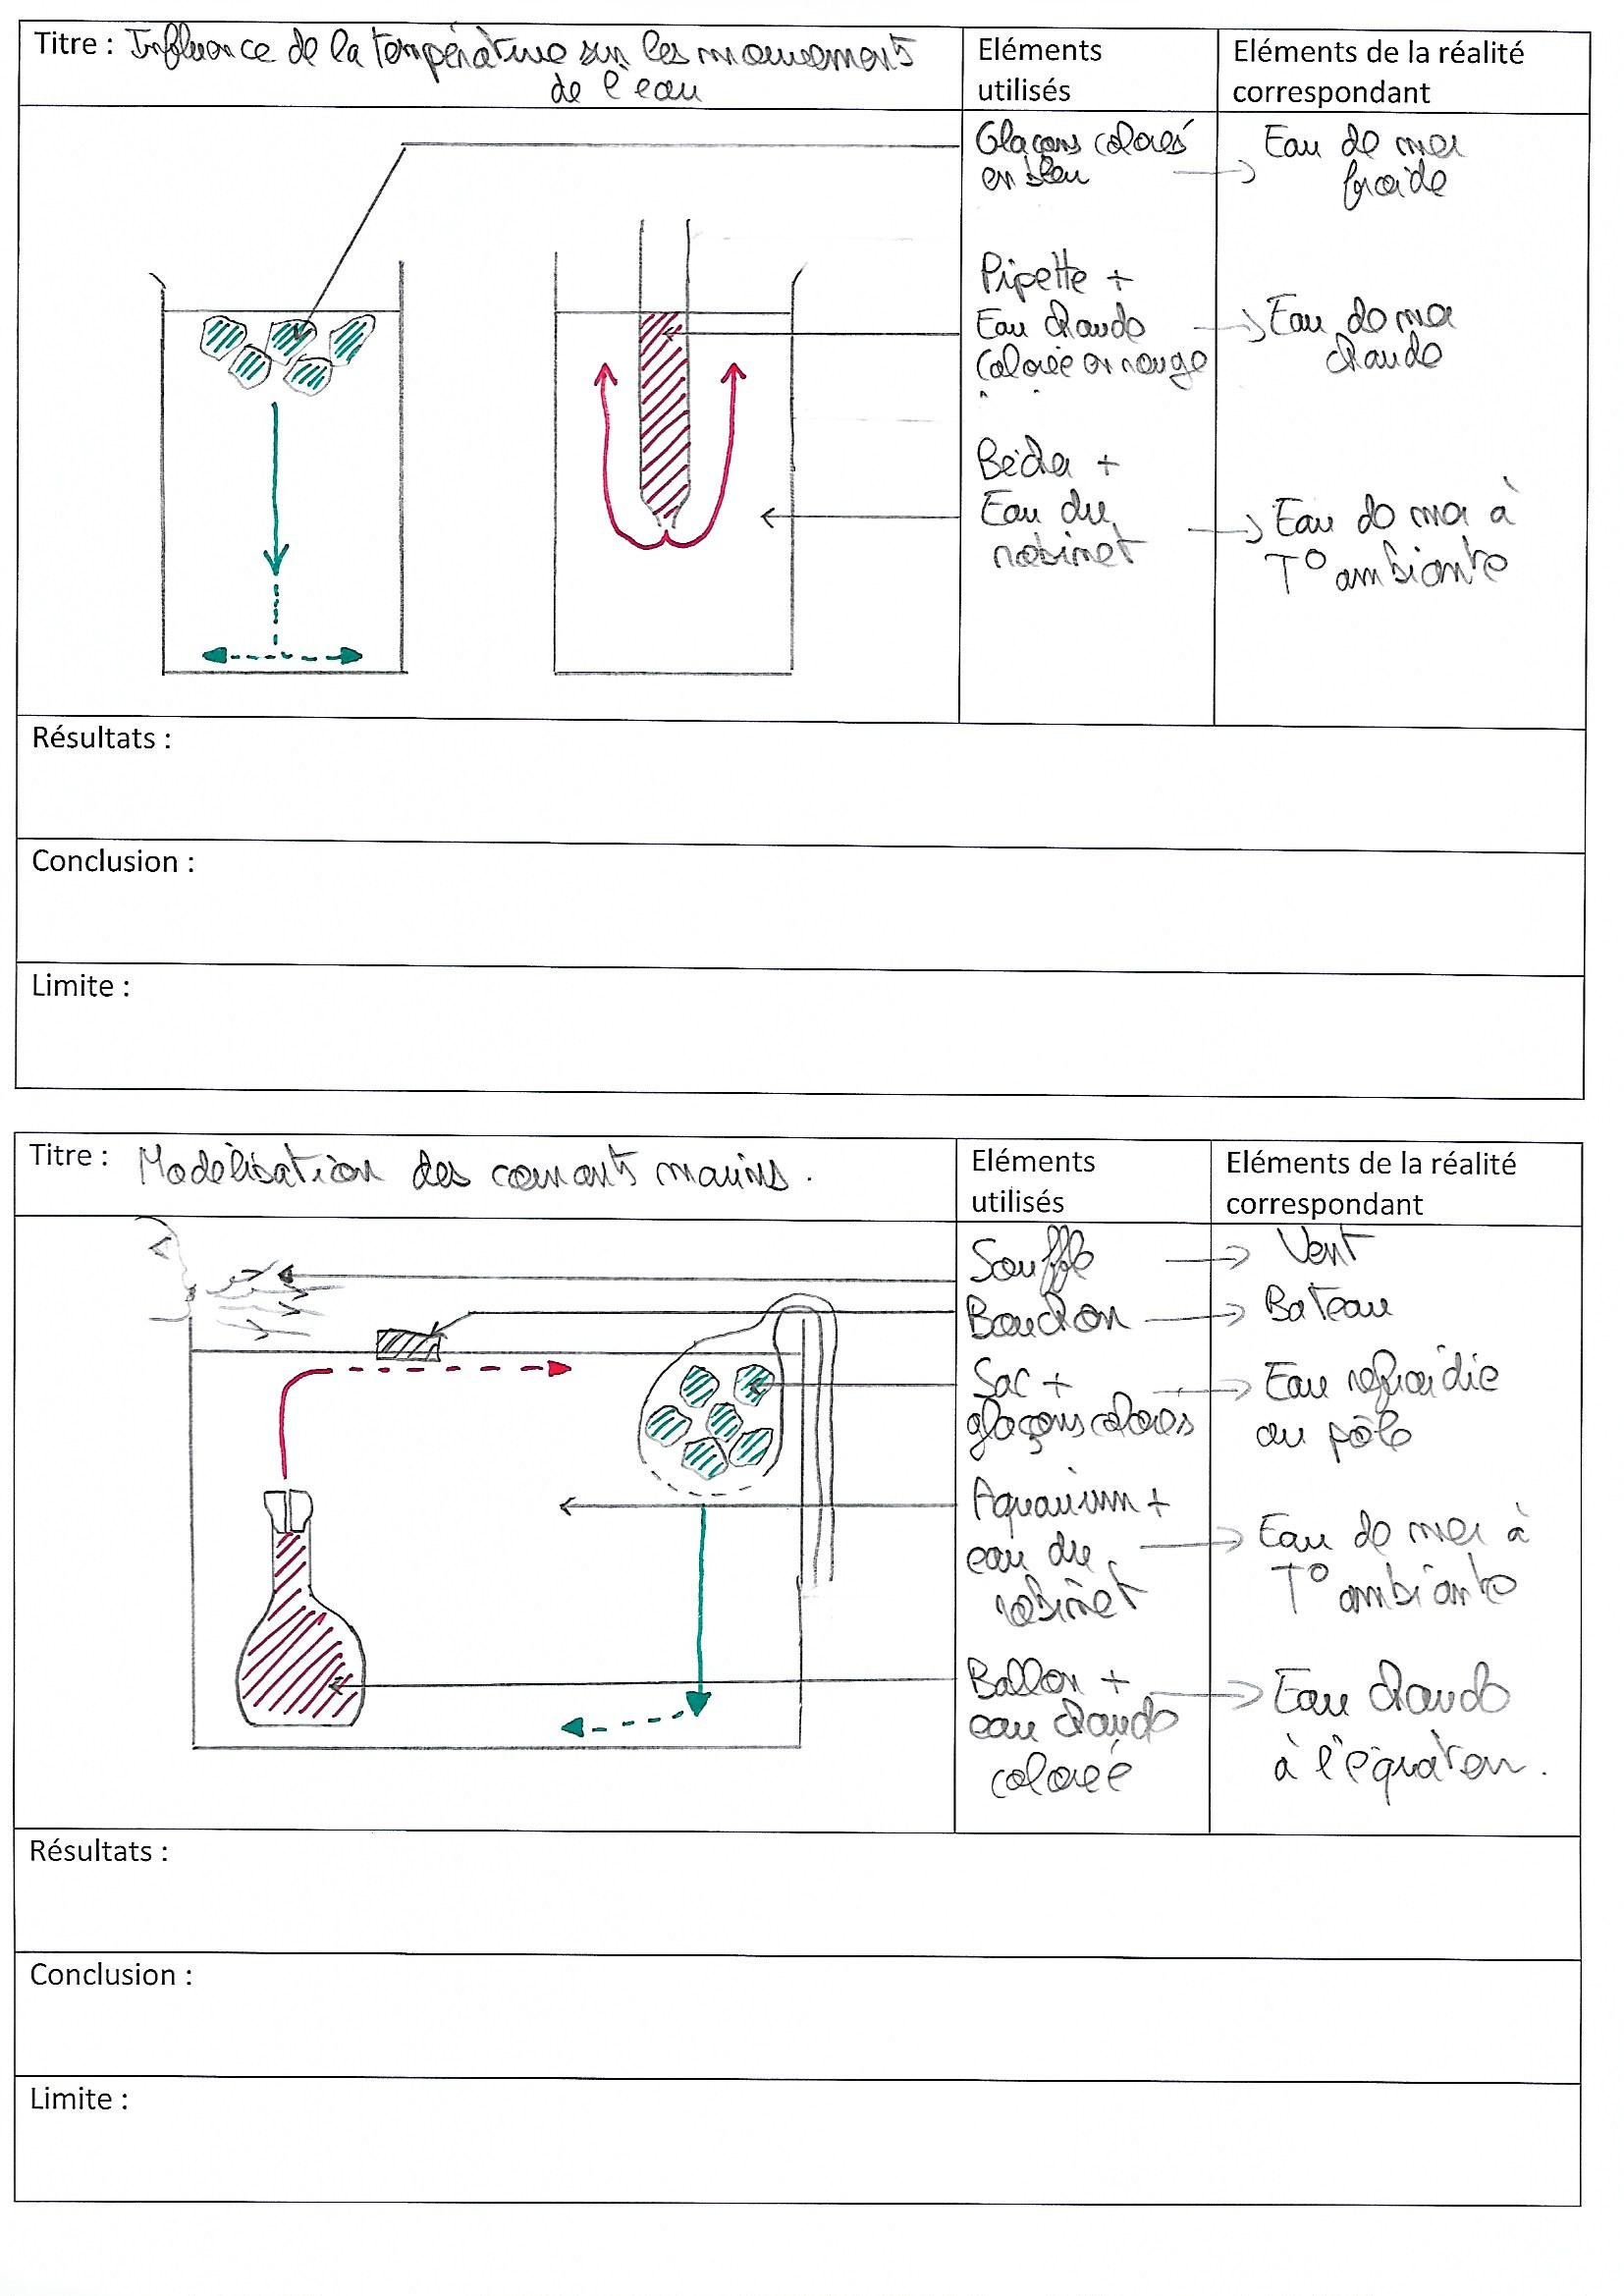 Titre : Influence de la température sur les mouvements
de l'eau
Eléments
utilisés
Eléments de la réalité
correspondant
Glaçons colorés
en bleu
Eau de mer
froide
Pipette +
Eau chaude
colorée en rouge
Eau de mer
chaude
Bécher +
Eau du
robinet
Eau de mer à
T° ambiante
Résultats :
Conclusion :
Limite :
Titre : Modélisation des courants marins.
Eléments
utilisés
Eléments de la réalité
correspondant
Souffle
Vent
Bouchon
Bateau
Sac +
glaçons colorés
Eau refroidie
au pôle
Aquarium +
eau du
robinet
Eau de mer à
T° ambiante
Ballon +
eau chaude
colorée
Eau chaude
à l'équateur.
Résultats :
Conclusion :
Limite :